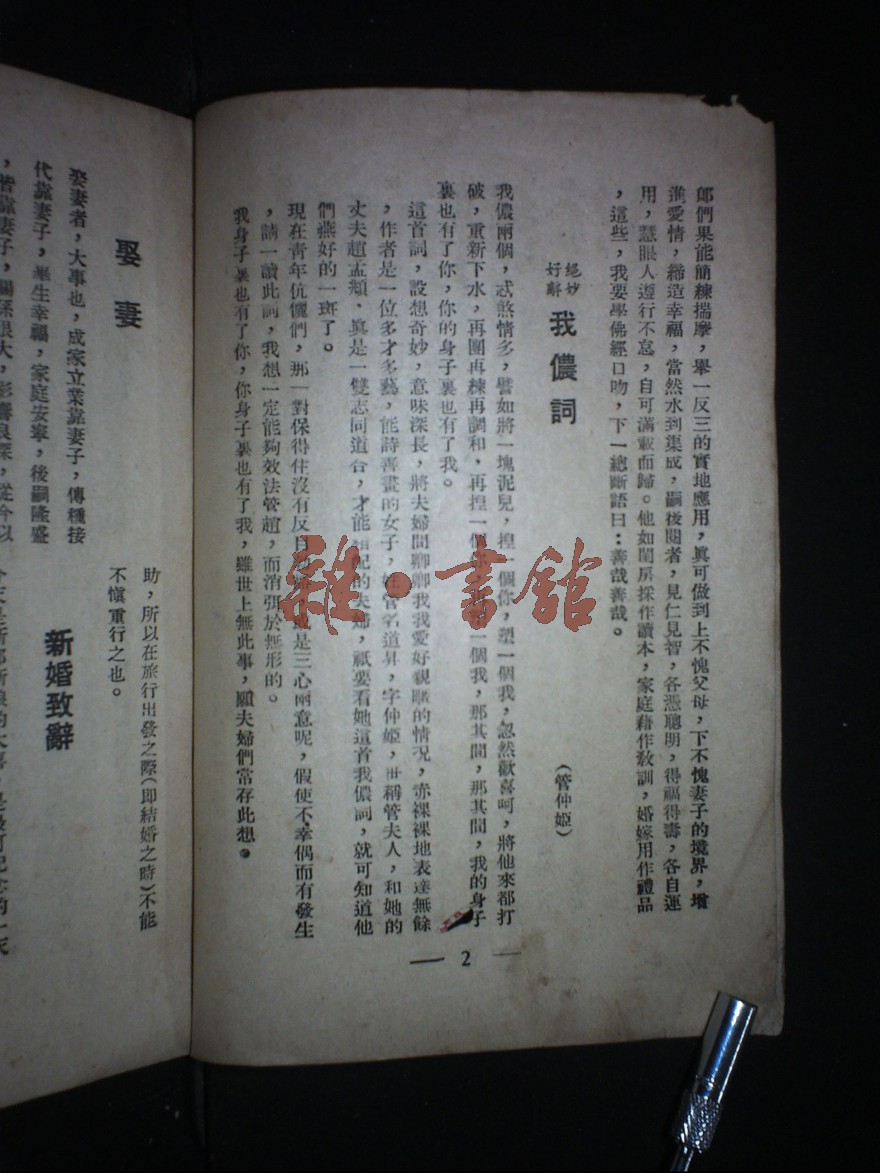 郎們果能簡練揣摩，舉一反三的實地應用，眞可做到上不愧父母，下不愧妻子的境界，增
進愛情，締造幸福，當然水到渠成，嗣後閱者，見仁見智，各憑聰明，得福得壽，各自運
用，慧眼人遵行不怠，自可滿載而歸。他如閨房採作讀本，家庭藉作敎訓，婚嫁用作禮品
，這些，我要學佛經口吻，下一總斷語曰：善哉善哉。
絕妙
好辭
我儂詞
（管仲姬）
我儂兩個，忒煞情多，譬如將一塊泥兒，捏一個你，塑一個我，忽然歡喜呵，將他來都打
破，重新下水，再團再練再調和，再捏一個你，一個我，那其間，那其間，我的身子
裏也有了你，你的身子裏也有了我。
這首詞，設想奇妙，意味深長，將夫婦間卿卿我我愛好親暱的情況，赤裸裸地表達無餘
，作者是一位多才多藝，能詩善畫的女子，姓管名道昇，字仲姬，世稱管夫人，和她的
丈夫趙孟頫，眞是一雙志同道合，才能相配的夫婦，祇要看她這首我儂詞，就可知道他
們燕好的一斑了。
現在青年伉儷們，那一對保得住沒有反目，是三心兩意呢，假使不幸偶而有發生
，請一讀此詞，我想一定能夠效法管趙，而消弭於無形的。
我身子裏也有了你，你身子裏也有了我，雖世上無此事，願夫婦們當存此想。
— 2 —
雜·書館
助，所以在旅行出發之際（即結婚之時）不能
不愼重行之也。
新婚致辭
娶妻
娶妻者，大事也，成家立業靠妻子，傳種接
代靠妻子，畢生幸福，家庭安寧，後嗣隆盛
，皆靠妻子，關係很大，影響良深，從今以